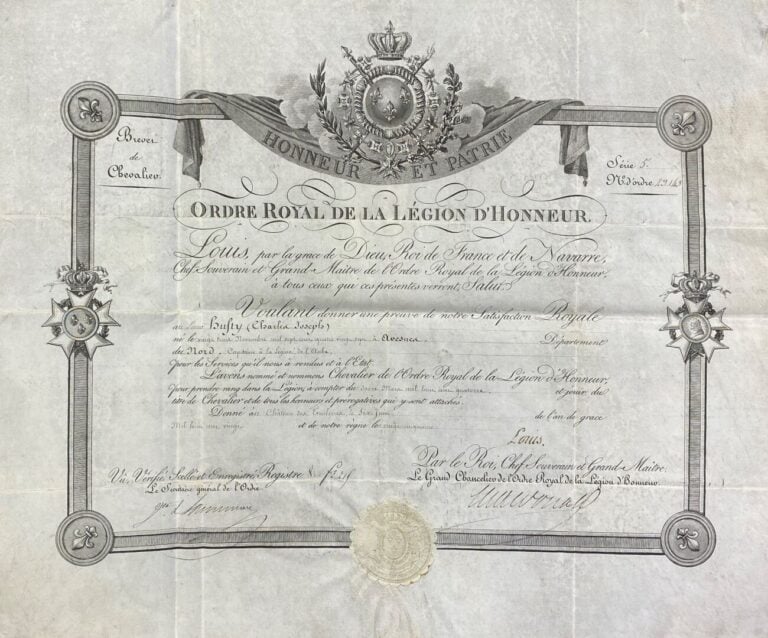 HONNEUR ET PATRIE
Brevet
de
Chevalier.
Série 5.
N.º d'ordre
ORDRE ROYAL DE LA LÉGION D'HONNEUR.
Louis, par la grace de Dieu, Roi de France et de Navarre,
Chef Souverain et Grand-Maître de l'Ordre Royal de la Légion d'Honneur,
à tous ceux qui ces présentes verront, Salut.
Voulant donner une preuve de notre Satisfaction Royale
au Sieur Hufty (Charles Joseph)
né le vingt trois Novembre mil sept cent quatre vingt sept à Avesnes Département
du Nord, Capitaine à la légion de l'Aube
pour les Services qu'il nous à rendus et à l'Etat.
L'avons nommé et nommons Chevalier de l'Ordre Royal de la Légion d'Honneur,
pour prendre rang dans la Légion, à compter du Mars mil huit cent quatorze et jouir du
titre de Chevalier et de tous les honneurs et prérogatives qui y sont attachés.
Donné au Château des Tuileries, le Juin de l'an de grace
Mil huit cent vingt et de notre règne le
Louis.
Par le Roi, Chef Souverain et Grand-Maître:
Vu, Vérifié Scellé et Enregistré, Registre
Le Grand Chancelier de l'Ordre Royal de la Légion d'Honneur
Le Secrétaire général de l'Ordre